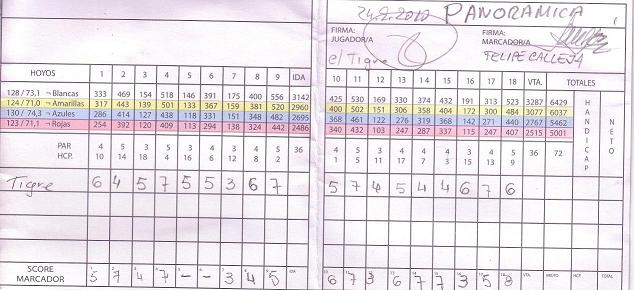 24.2.2010 PANORAMICA
FIRMA: JUGADOR/A
FIRMA: MARCADOR/A
el Tigre
FELIPE CALLEJA
HOYOS 1 2 3 4 5 6 7 8 9 IDA
128 / 73,1 ¬ Blancas 333 469 154 518 146 391 175 400 556 3142
124 / 71,0 ¬ Amarillas 317 443 139 501 133 367 159 381 520 2960
130 / 74,3 ¬ Azules 286 414 127 438 118 331 151 348 482 2695
123 / 71,1 ¬ Rojas 254 392 120 409 113 294 138 324 442 2486
PAR 4 5 3 5 3 4 3 4 5 36
HCP. 10 14 18 4 16 6 12 8 2
Tigre 6 4 5 7 5 5 3 6 7
SCORE MARCADOR 5 7 4 7 - - 3 4 5 IDA
10 11 12 13 14 15 16 17 18 VTA. TOTALES
425 530 169 330 374 432 191 313 523 3287 6429
400 502 151 306 358 404 172 300 484 3077 6037
368 461 122 276 319 368 142 271 440 2767 5462
340 432 103 247 287 337 115 247 407 2515 5001
HANDICAP
NETO
4 5 3 4 4 4 3 4 5 36 72
1 5 11 7 17 3 15 13 9
5 7 4 5 4 4 6 7 6
6 7 3 6 7 7 3 5 8 VTA. BRUTO HCP. TOTAL